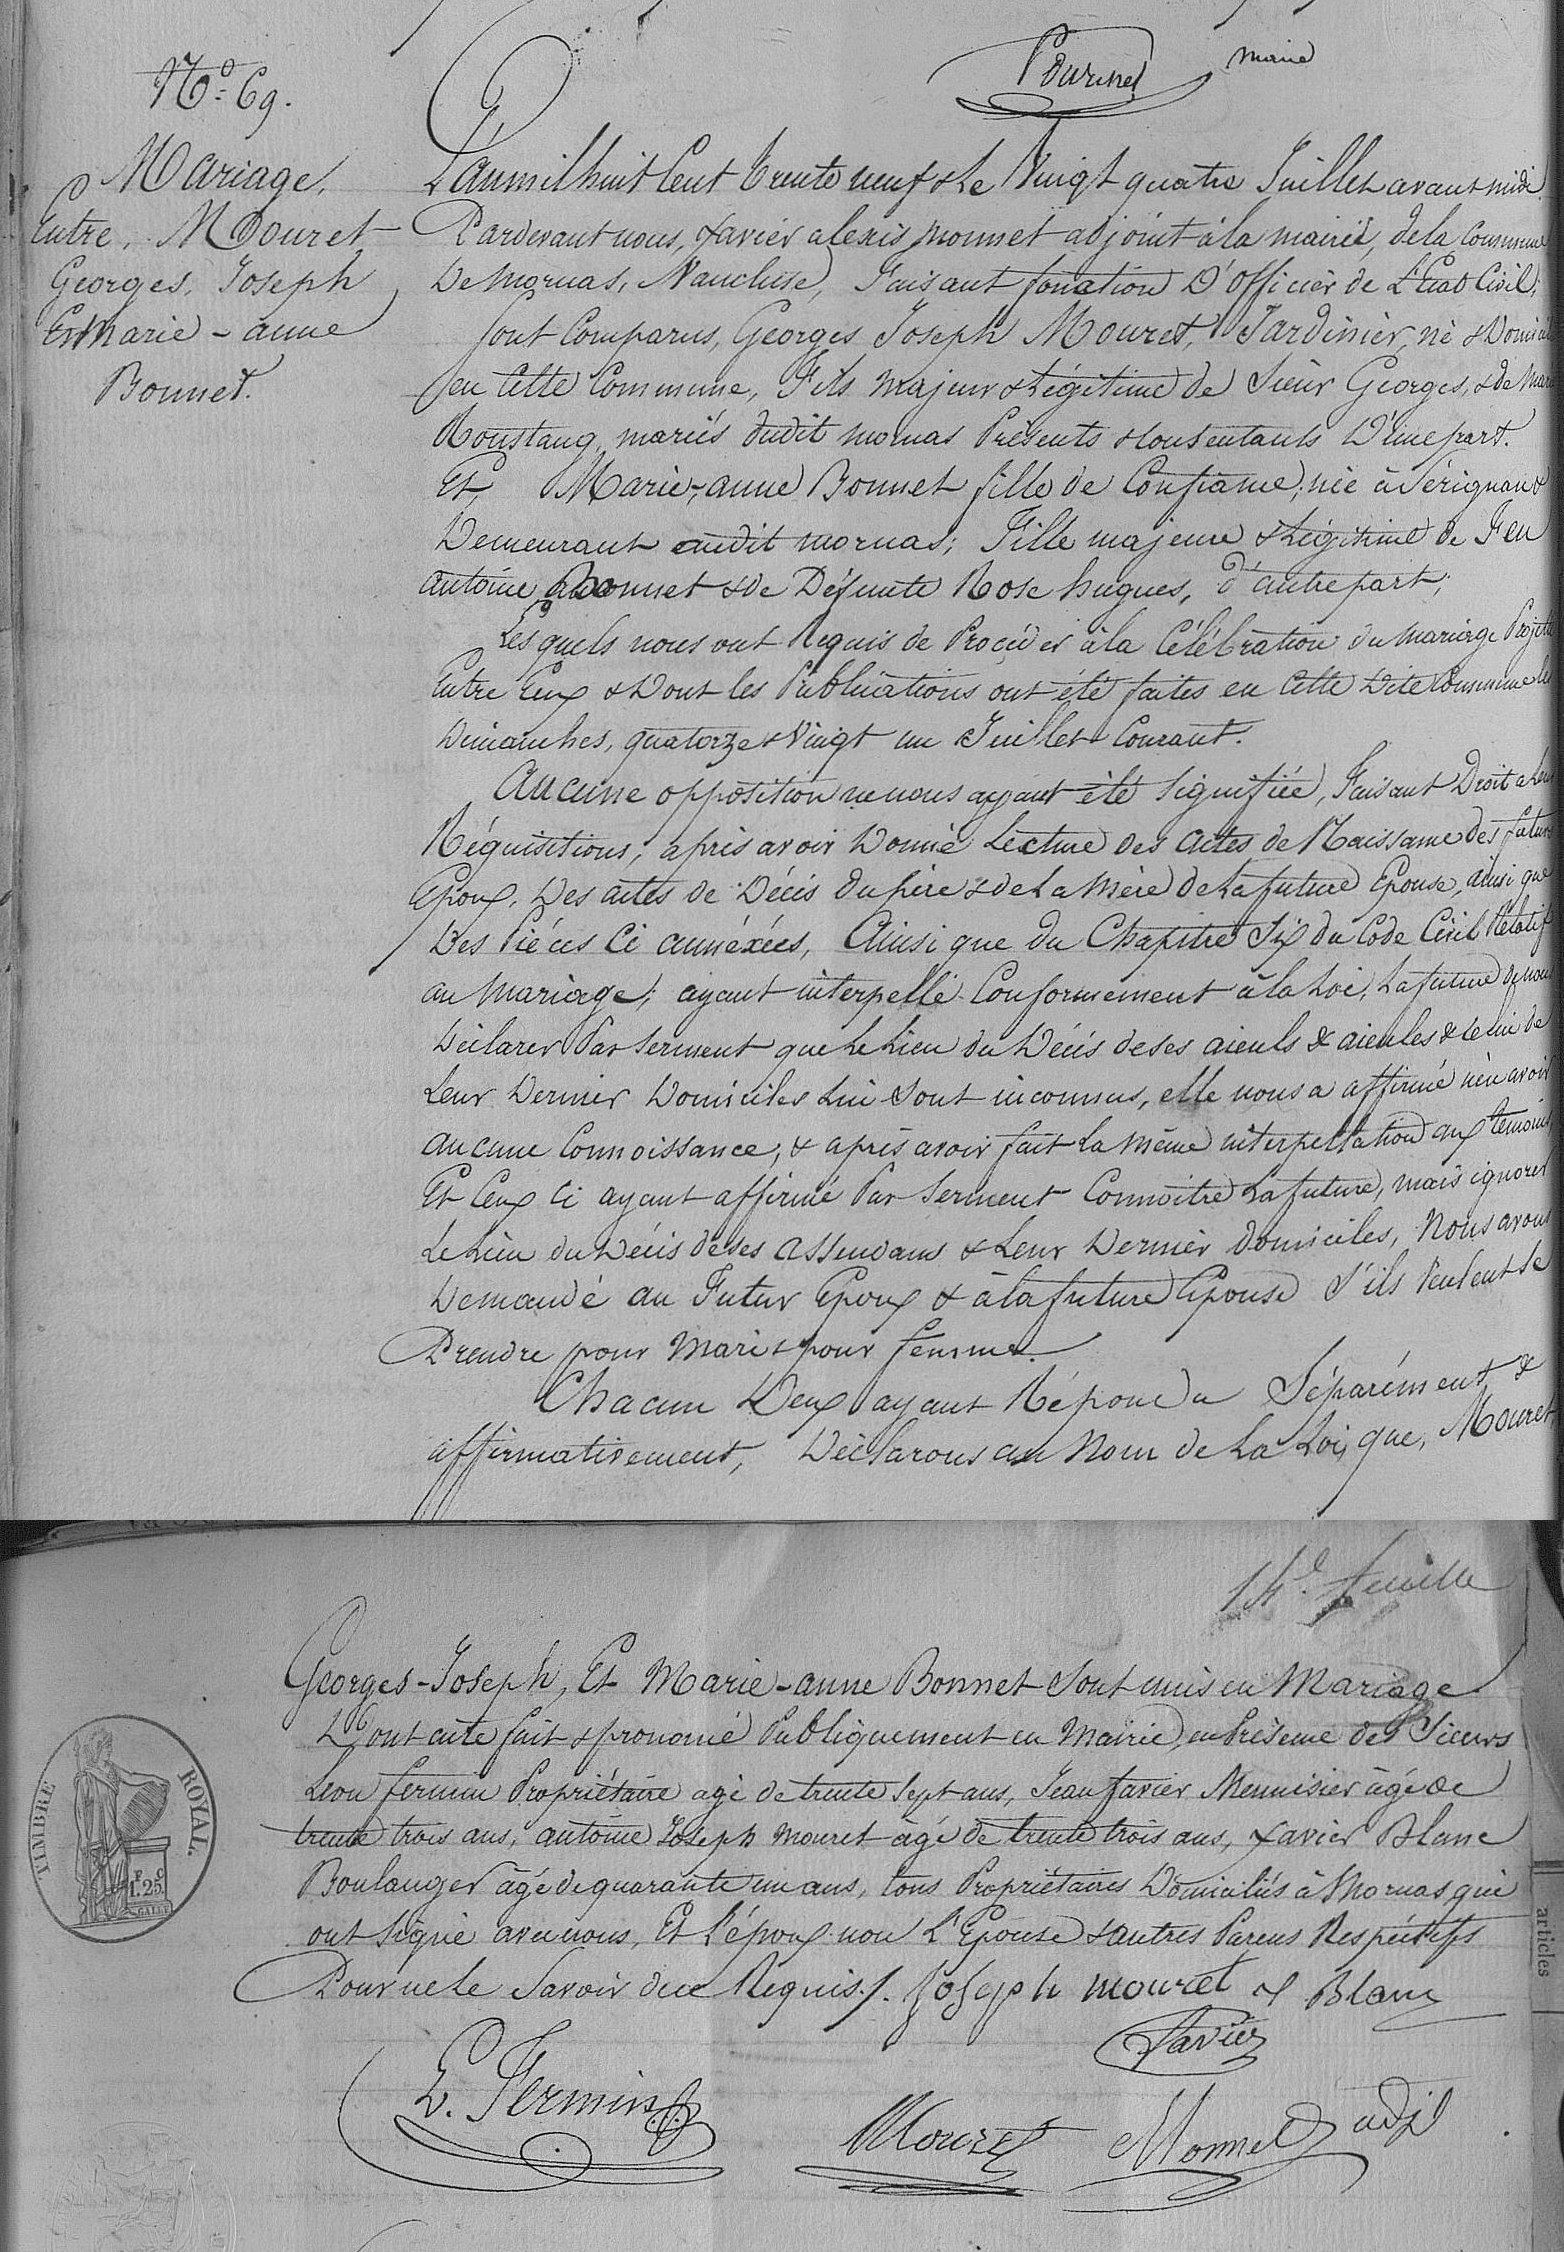 Pournet maire
N.º 69.
Mariage,
Entre, Mouret
Georges, Joseph
Et Marie - anne
Bonnet.
L'an mil huit Cent trente neuf & le Vingt quatre Juillet avant midi
Pardevant nous, Xavier alexis monnet adjoint à la mairie, de la Commune
De Mornas, Vaucluse, Faisant fonction D'officier de L'Etat Civil;
sont Comparus, Georges Joseph Mouret, Jardinier, né & Domicilié
en Cette Commune, Fils majeur & Légitime de Sieur Georges, & de Marie
Roustang, mariés dudit mornas Présents & Consentants D'une part.
Et Marie-anne Bonnet fille de Confiance, née à Sérignan &
Demeurant audit mornas; Fille majeure & Légitime de Feu
antoine Bonnet & de Défunte Rose hugues, d'autre part;
Lesquels nous ont Requis de Procéder à la Célébration du mariage Projetté
Entre Eux & Dont les Publications ont été faites en Cette Dite Commune les
Dimanches, quatorze & Vingt un Juillet Courant.
Aucune opposition ne nous ayant été signifiée, Faisant Droit a Leur
Réquisitions; après avoir Donné Lecture des actes de Naissance des futurs
Epoux, Des actes de Décès du père & de La Mère de La future Epouse, ainsi que
Des Piéces Ci annéxées, Ainsi que du Chapitre Six du Code Civil Rélatif
au Mariage; ayant interpellé Conformement à la Loi, La future de nous
Déclarer Par Serment que Le Lieu du Décès de ses aieuls & aieules & celui de
Leur Dernier Domiciles Lui sont inconnus, elle nous a affirmé n'en avoir
aucune Connoissance, & après avoir fait La même interpellation aux temoins,
Et Ceux Ci ayant affirmé Par Serment Connoitre La future, mais ignorer
Le Lieu du Décès de ses assendans & Leur Dernier Domiciles, Nous avons
Demandé au Futur Epoux & à la future Epouse S'ils Veulent Se
Prendre pour Mari & pour femme.
Chacun Deux ayant Répondu Séparément &
affirmativement, Déclarons au Nom de La Loi, que, Mouret
14.e feuille
Georges-Joseph, Et Marie-anne Bonnet Sont unis en Mariage
Dont acte fait & prononcé Publiquement en Mairie, en Présence des Sieurs
Leon fermin Propriétaire agé de trente Sept ans, Jean favier Menuisier âgé de
trente trois ans, antoine Joseph Mouret âgé de trente trois ans, Xavier Blanc
Boulanger âgé de quarante un ans, tous Propriétaires Domiciliés à Mornas qui
ont Signé avec nous, Et L'époux non L'Epouse & autres Parens Respéctifs
Pour ne le Savoir de ce Requis./. Joseph mouret X Blanc
favier
L. Fermin
Mouret Monnet adjt
TIMBRE ROYAL.
1.25
articles